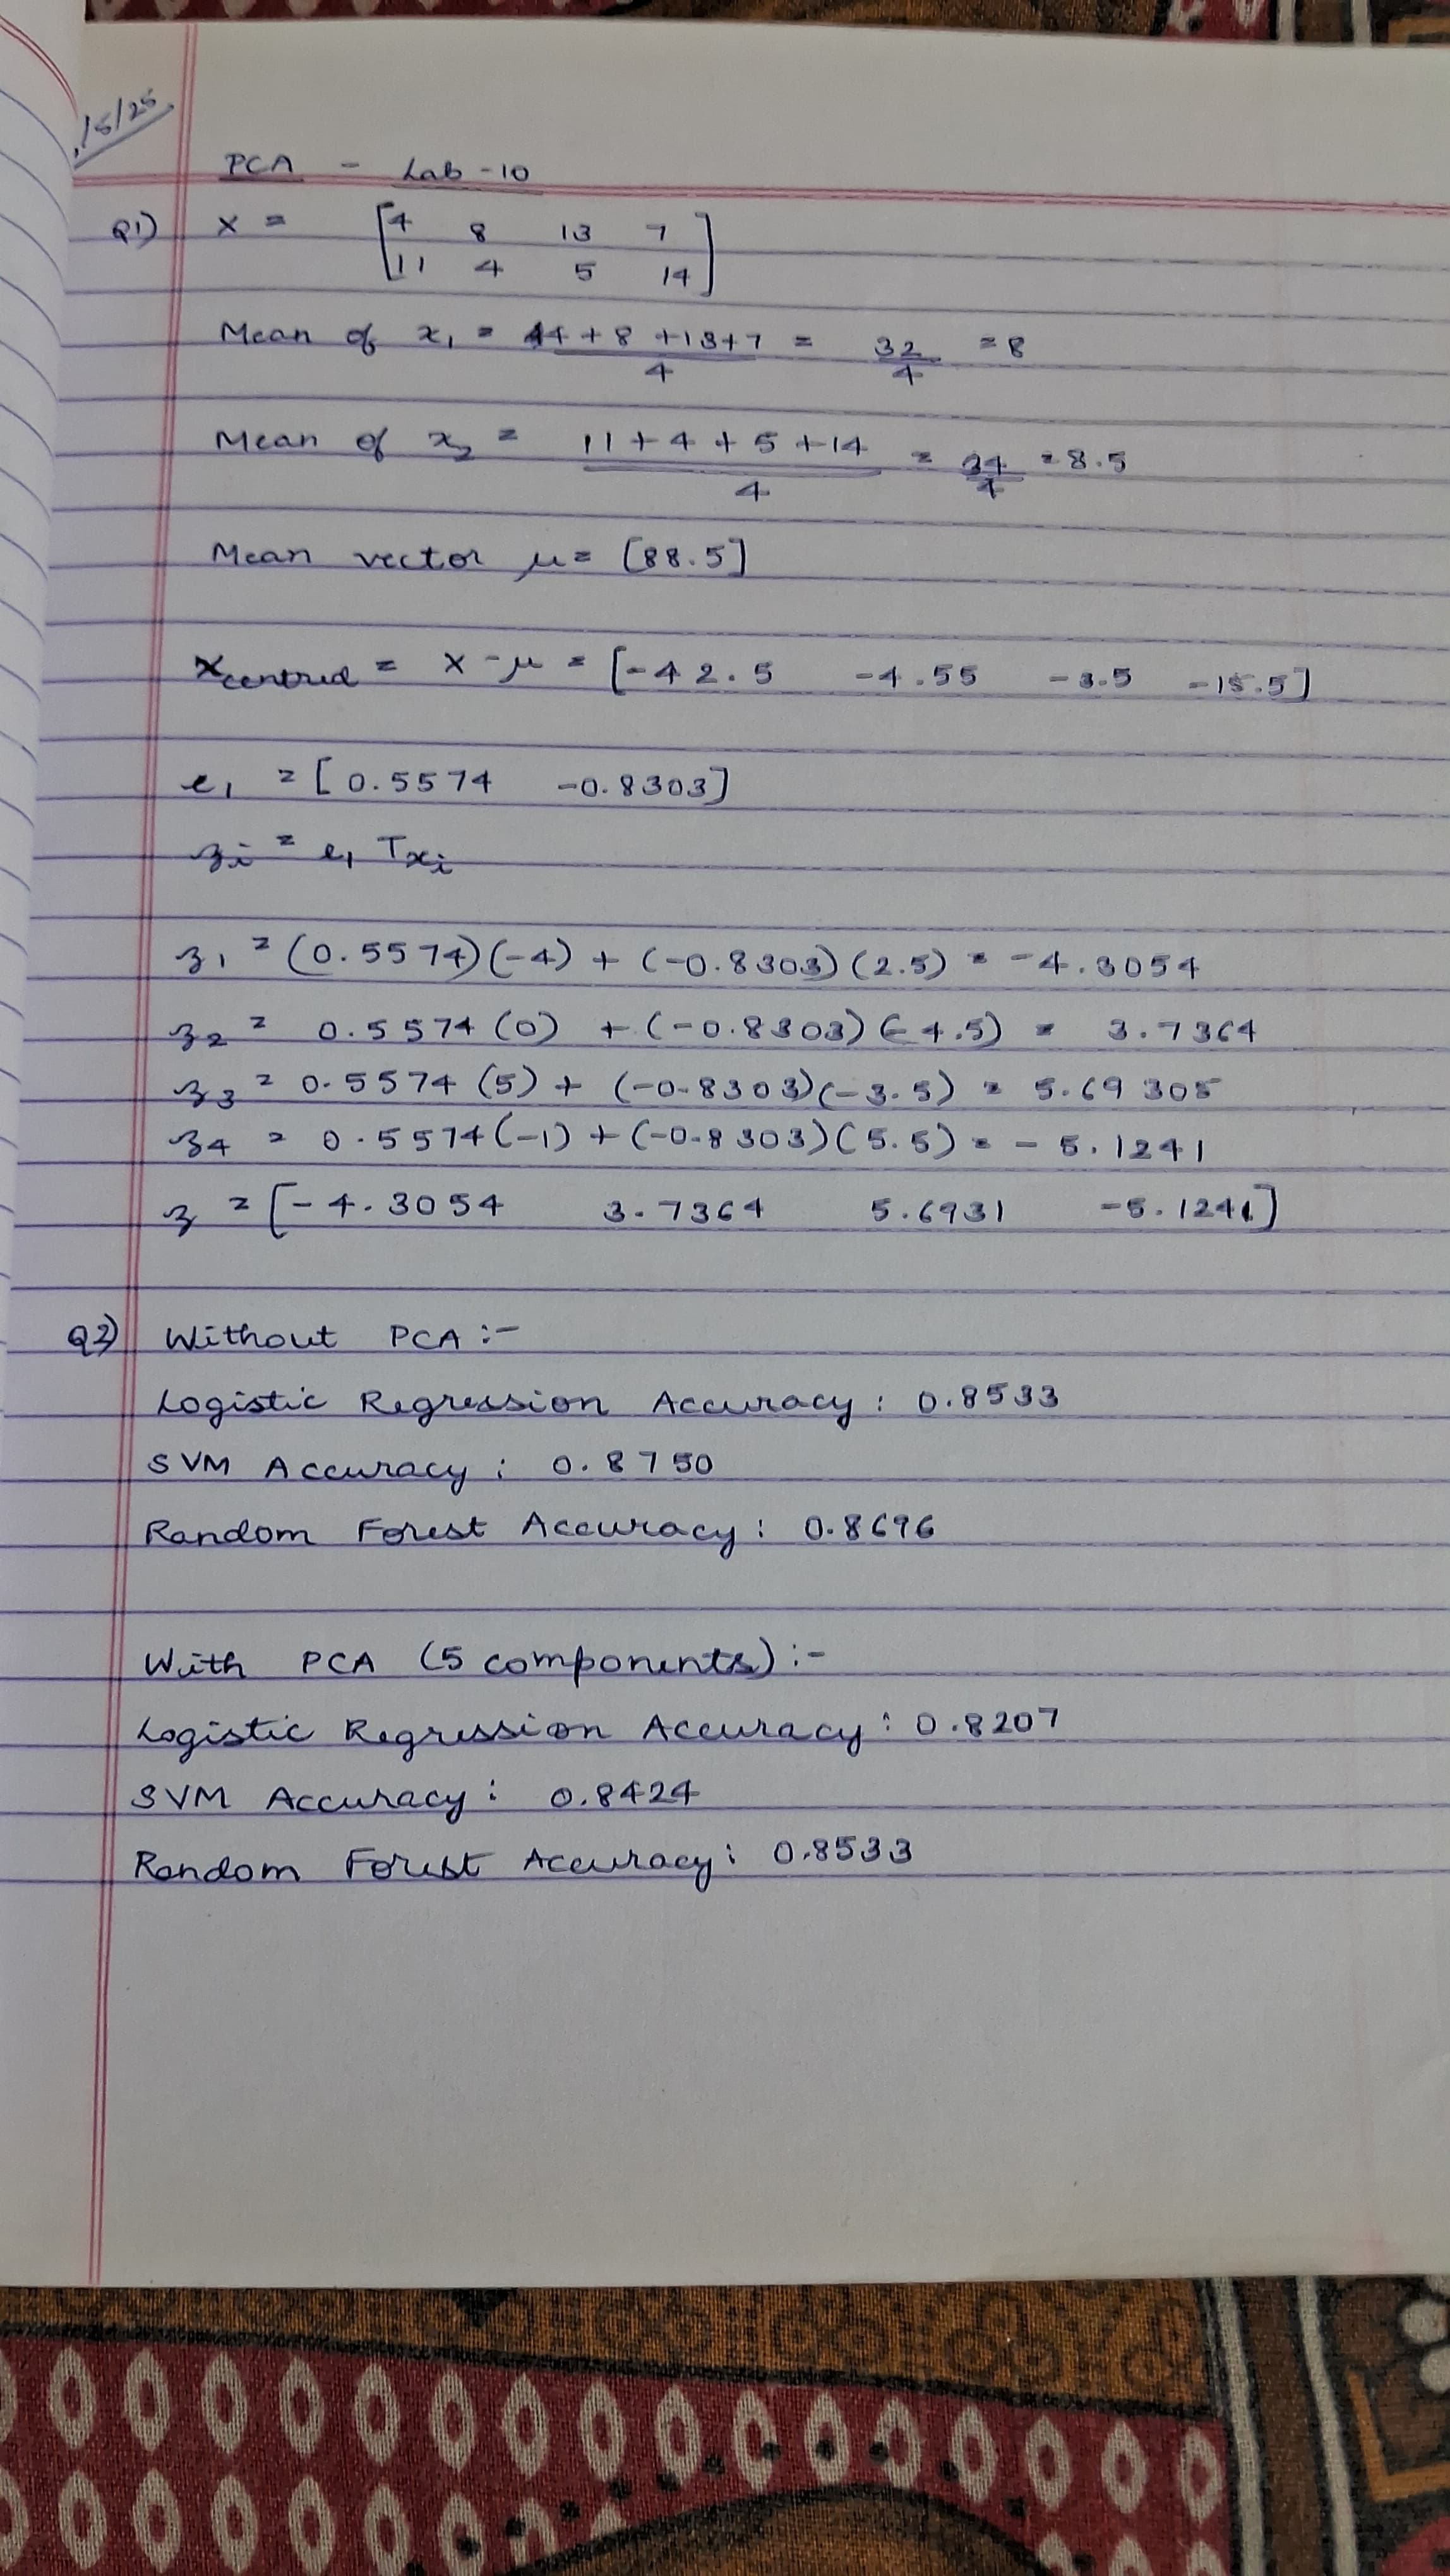 /5/25
PCA - Lab -10
Q1) X = [4 8 13 7
11 4 5 14]
Mean of x₁ = 4+8+13+7 / 4 = 32/4 = 8
Mean of x₂ = 11+4+5+14 / 4 = 34/4 = 8.5
Mean vector μ = [88.5]
Xcentred = X - μ = [-42.5 -4.55 -3.5 -15.5]
e₁ = [0.5574 -0.8303]
zᵢ = e₁ Txᵢ
z₁ = (0.5574)(-4) + (-0.8303)(2.5) = -4.3054
z₂ = 0.5574(0) + (-0.8303)(-4.5) = 3.7364
z₃ = 0.5574(5) + (-0.8303)(-3.5) = 5.69305
z₄ = 0.5574(-1) + (-0.8303)(5.5) = -5.1241
z = [-4.3054 3.7364 5.6931 -5.1241]
Q2) Without PCA :-
Logistic Regression Accuracy : 0.8533
SVM Accuracy : 0.8750
Random Forest Accuracy : 0.8696
With PCA (5 components) :-
Logistic Regression Accuracy : 0.8207
SVM Accuracy : 0.8424
Random Forest Accuracy : 0.8533